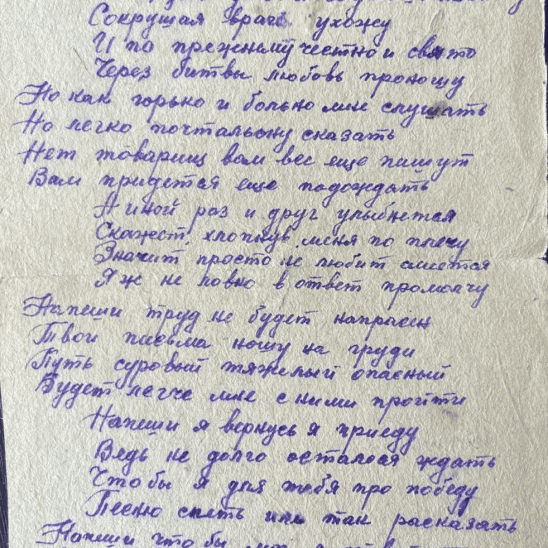 Сокрушая врага ухожу
И по прежнему честно и свято
Через битвы любовь проношу
Но как горько и больно мне слушать
Но легко почтальону сказать
Нет товарищ вам все еще пишут
Вам придется еще подождать
А иной раз и друг улыбнется
Скажет, хлопнув меня по плечу
Значит просто не любит смеется
Я ж не ловко в ответ промолчу
Напиши труд не будет напрасен
Твои письма ношу на груди
Путь суровый тяжелый опасный
Будет легче мне с ними пройти
Напеши я вернусь я приеду
Ведь не долго осталося ждать
Что бы я для тебя про победу
Песню спеть или так расказать
Напеши что бы